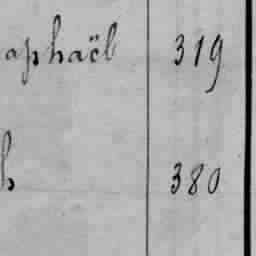 aphaël 319
h 380